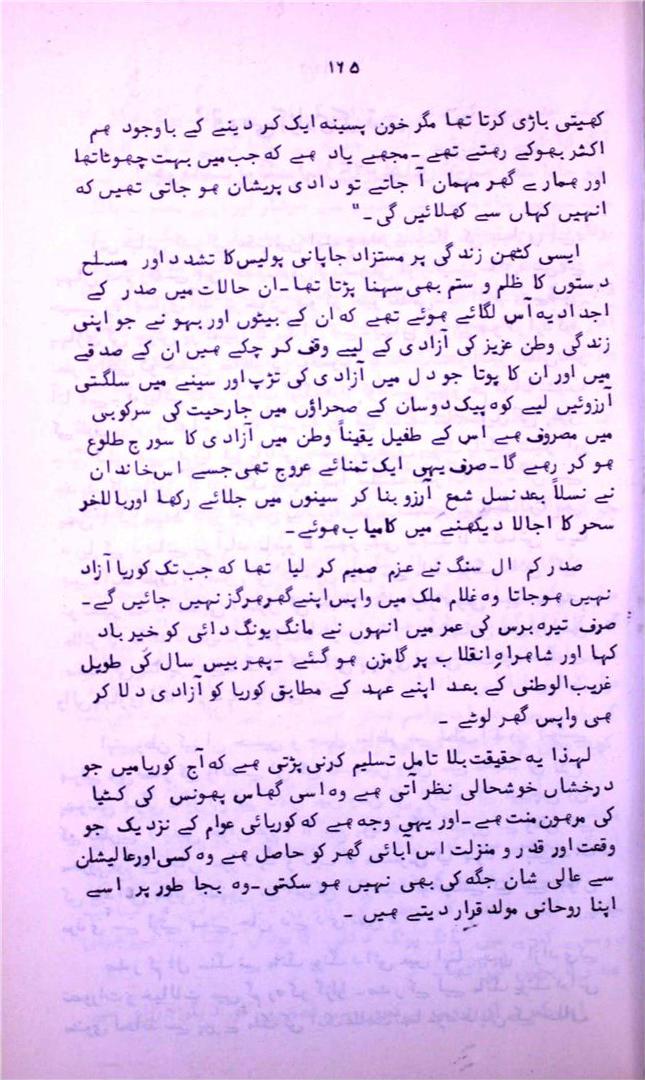 ۱۶۵
کھیتی باڑی کرتا تھا مگر خون پسینہ ایک کر دینے کے باوجود ھم
اکثر بھوکے رھتے تھے۔ مجھے یاد ھے کہ جب میں بہت چھوٹا تھا
اور ھمارے گھر مہمان آ جاتے تو دادی پریشان ھو جاتی تھیں کہ
انہیں کہاں سے کھلائیں گی۔"
ایسی کٹھن زندگی پر مستزاد جاپانی پولیس کا تشدد اور مسلح
دستوں کا ظلم و ستم بھی سہنا پڑتا تھا۔ ان حالات میں صدر کے
اجداد یہ آس لگائے ھوئے تھے کہ ان کے بیٹوں اور بہو نے جو اپنی
زندگی وطن عزیز کی آزادی کے لیے وقف کر چکے ھیں ان کے صدقے
میں اور ان کا پوتا جو دل میں آزادی کی تڑپ اور سینے میں سلگتی
آرزوئیں لیے کوہ پیک دوسان کے صحراؤں میں جارحیت کی سرکوبی
میں مصروف ھے اس کے طفیل یقیناً وطن میں آزادی کا سورج طلوع
ھو کر رھے گا۔ صرف یہی ایک تمنائے عروج تھی جسے اس خاندان
نے نسلاً بعد نسل شمع آرزو بنا کر سینوں میں جلائے رکھا اور باللاخر
سحر کا اجالا دیکھنے میں کامیاب ھوئے۔
صدر کم ال سنگ نے عزم صمیم کر لیا تھا کہ جب تک کوریا آزاد
نہیں ھوجاتا وہ غلام ملک میں واپس اپنے گھر ھرگز نہیں جائیں گے۔
صرف تیرہ برس کی عمر میں انہوں نے مانگ یونگ دائی کو خیر باد
کہا اور شاھراہِ انقلاب پر گامزن ھو گئے۔ پھر بیس سال کی طویل
غریب الوطنی کے بعد اپنے عہد کے مطابق کوریا کو آزادی دلا کر
ھی واپس گھر لوٹے۔
لہذا یہ حقیقت بلا تامل تسلیم کرنی پڑتی ھے کہ آج کوریا میں جو
درخشاں خوشحالی نظر آتی ھے وہ اسی گھاس پھونس کی کٹیا
کی مرھون منت ھے۔ اور یہی وجہ ھے کہ کوریائی عوام کے نزدیک جو
وقعت اور قدر و منزلت اس آبائی گھر کو حاصل ھے وہ کسی اور عالیشان
سے عالی شان جگہ کی بھی نہیں ھو سکتی۔ وہ بجا طور پر اسے
اپنا روحانی مولد قرار دیتے ھیں۔